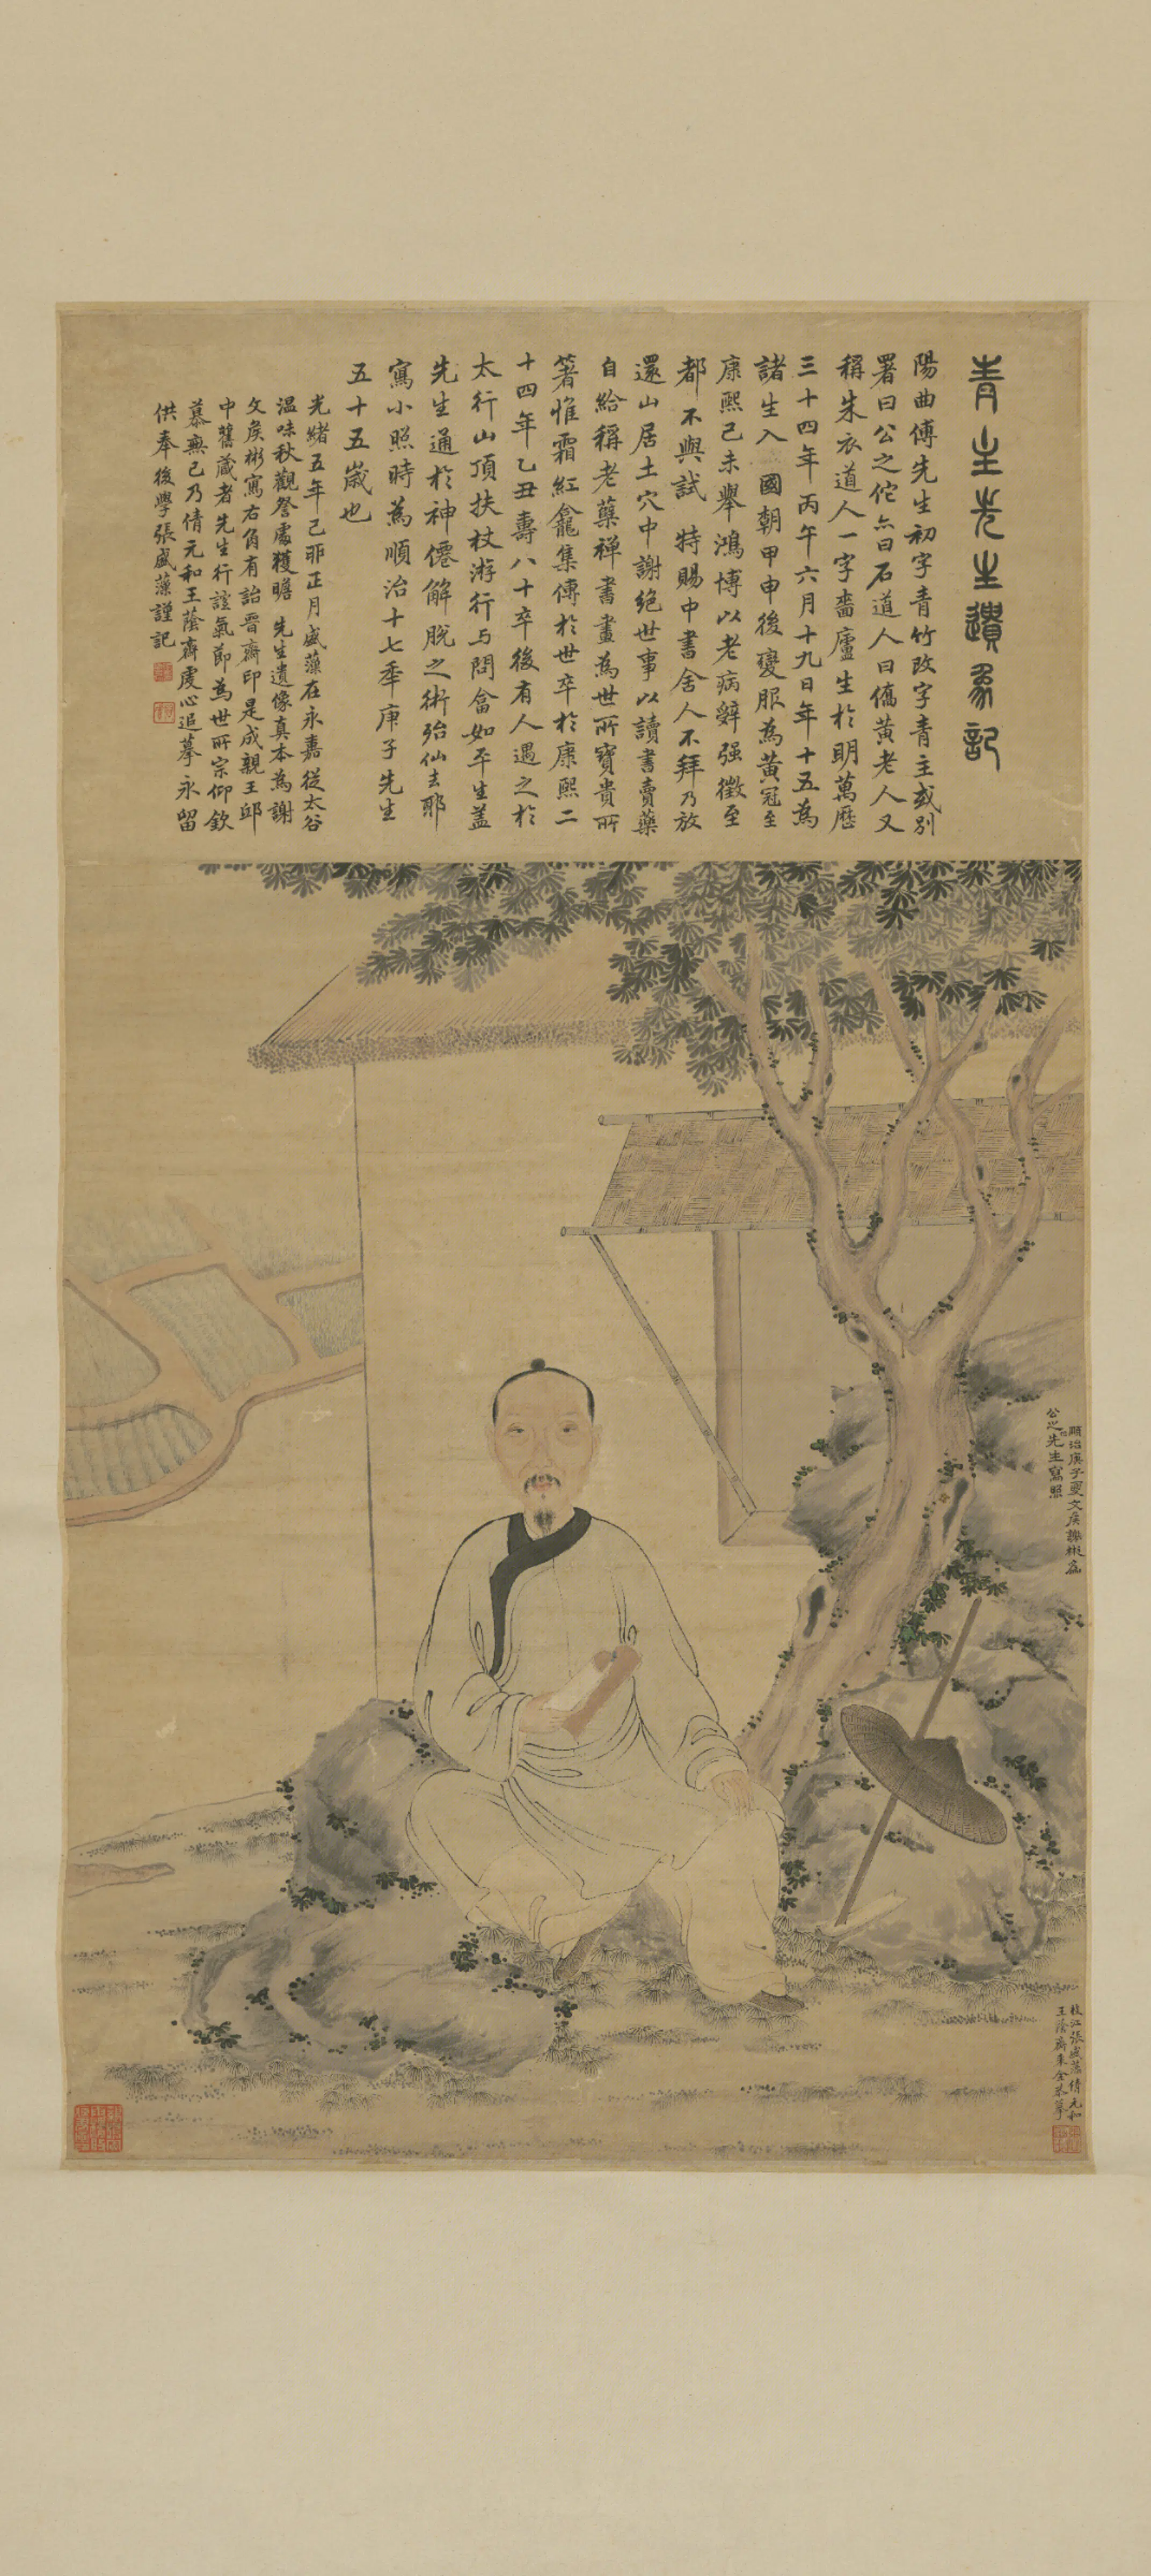 青主先生遺象記
陽曲傅先生初字青竹改字青主或別
署曰公之佗亦曰石道人曰僑黃老人又
稱朱衣道人一字嗇廬生於明萬歷
三十四年丙午六月十九日年十五為
諸生入 國朝甲申後變服為黃冠至
康熙己未舉鴻博以老病辭强徵至
都不與試 特賜中書舍人不拜乃放
還山居土穴中謝絕世事以讀書賣藥
自給稱老藥禅書畫為世所寶貴所
著惟霜紅龕集傳於世卒於康熙二
十四年乙丑壽八十卒後有人遇之於
太行山頂扶杖游行与問畣如平生蓋
先生通於神僊解脫之術殆仙去耶
寫小照時為順治十七年庚子先生
五十五歲也
光緒五年己卯正月盛藻在永嘉從太谷
溫味秋觀詧處獲瞻 先生遺像真本為謝
文矦彬寫右角有詒晉齋印是成親王邸
中舊藏者先生行誼氣節為世所宗仰欽
慕無已乃倩元和王蔭齋虔心追摹永留
供奉後學張盛藻謹記
順治庚子夏文矦謝彬為
公之先生寫照
枝江張盛藻倩元和
王蔭齋朱金恭摹